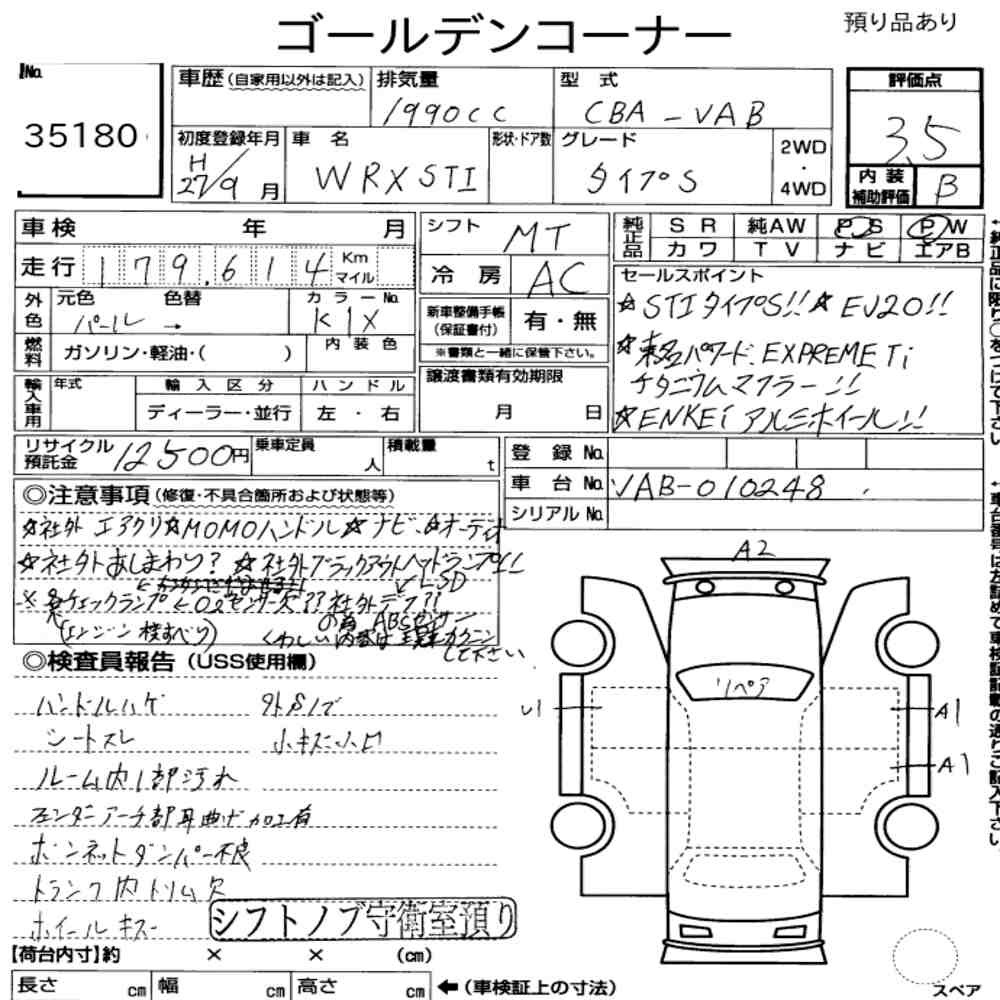 ゴールデンコーナー
預り品あり
No.
35180
車歴(自家用以外は記入)
排気量
1990cc
型 式
CBA-VAB
評価点
3.5
初度登録年月
H
27/9 月
車 名
WRX STI
形状・ドア数
グレード
タイプS
2WD
・
4WD
内 装
補助評価
B
車検 年 月
シフト
MT
純正品
SR 純AW PS PW
カワ TV ナビ エアB
走行
179.614
Km
マイル
冷 房
AC
セールスポイント
☆STIタイプS!! ☆EJ20!!
外色
元色 色替
パール →
カラーNo.
K1X
新車整備手帳
(保証書付)
有・無
※書類と一緒に保管下さい。
☆東名パワード、EXPREME Ti
チタニウムマフラー!!
☆ENKEi アルミホイール!!
燃料
ガソリン・軽油・( )
内 装 色
譲渡書類有効期限
月 日
輸入車用
年式
輸 入 区 分
ディーラー・並行
ハ ン ド ル
左 ・ 右
リサイクル
預託金
12500円
乗車定員
人
積載量
t
登 録 No.
車 台 No.
VAB-010248
シリアル No.
◎注意事項(修復・不具合箇所および状態等)
☆社外 エアクリ☆MOMOハンドル☆ナビ、☆オーディオ
☆社外あしまわり? ☆社外ブラックアウトヘッドランプ!!
LSD
※ チェックランプ O2センサー欠?? 社外デフ??
の為 ABSセンサー
(エンジン 横すべり)
くわしい内容は 現車カクニン
して下さい
◎検査員報告(USS使用欄)
ハンドルハゲ 外Sノブ
シートスレ 小キズ小凹
ルーム内1部汚れ
フェンダーアーチ部耳曲げ加工有
ボンネットダンパー不良
トランク内トリム欠
ホイールキズ
シフトノブ守衛室預り
A2
リペア
U1
A1
A1
スペア
【荷台内寸】約 × × (cm)
長さ cm 幅 cm 高さ cm ←(車検証上の寸法)
←純正品に限り○をつけて下さい
←車台番号は左詰めで車検証記載の通りご記入下さい。